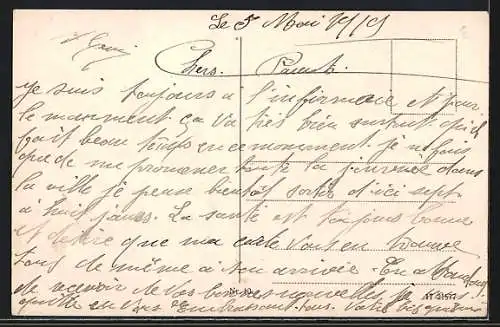 Le 5 Mai 1915
Chers Parents
Je suis toujours à l'infirmerie et pour
le manment ça va très bien surtout qu'il
fait beau temps en ce monment je ne fais
que de me promener toute la journée dans
la ville je pense bientot sortir d'ici sept
à huit jours. La santé est toujours bonne
et désire que ma carte vous en trouve
tous de même à son arrivée. En attendant
de recevoir de vos bonnes nouvelles je
quitte en vous embrassant tous. Votre